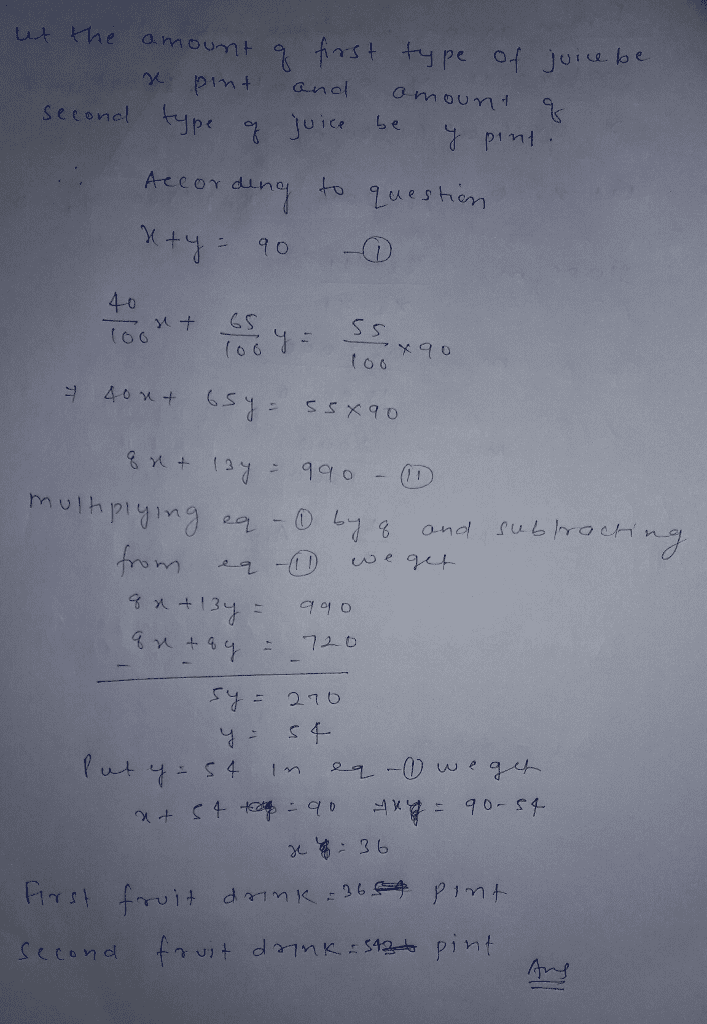 let the amount of first type of juice be
x pint and amount of
second type of juice be y pint.
∴ According to question
x+y = 90 —①
40/100 x + 65/100 y = 55/100 × 90
⇒ 40x + 65y = 55×90
8x + 13y = 990 - ⑪
multiplying eq - ① by 8 and subtracting
from eq -⑪ we get
8x +13y = 990
8x +8y = 720
- - -
5y = 270
y = 54
Put y = 54 in eq -① we get
x + 54 = 90 ⇒ x = 90-54
x = 36
First fruit drink = 36 pint
second fruit drink = 54 pint
Ans